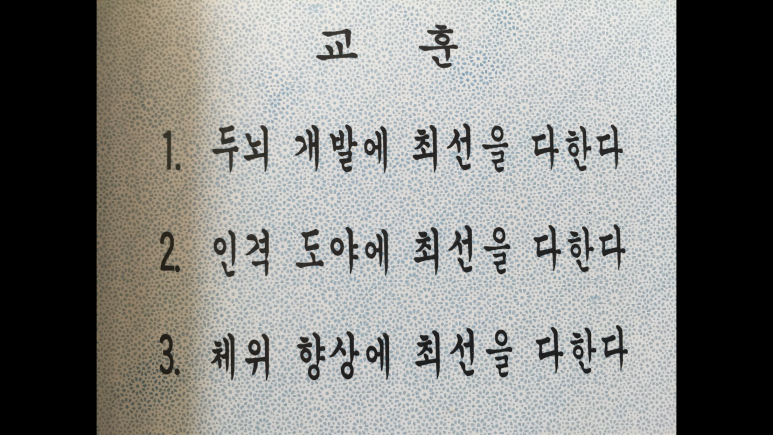 교 훈
1. 두뇌 개발에 최선을 다한다
2. 인격 도야에 최선을 다한다
3. 체위 향상에 최선을 다한다